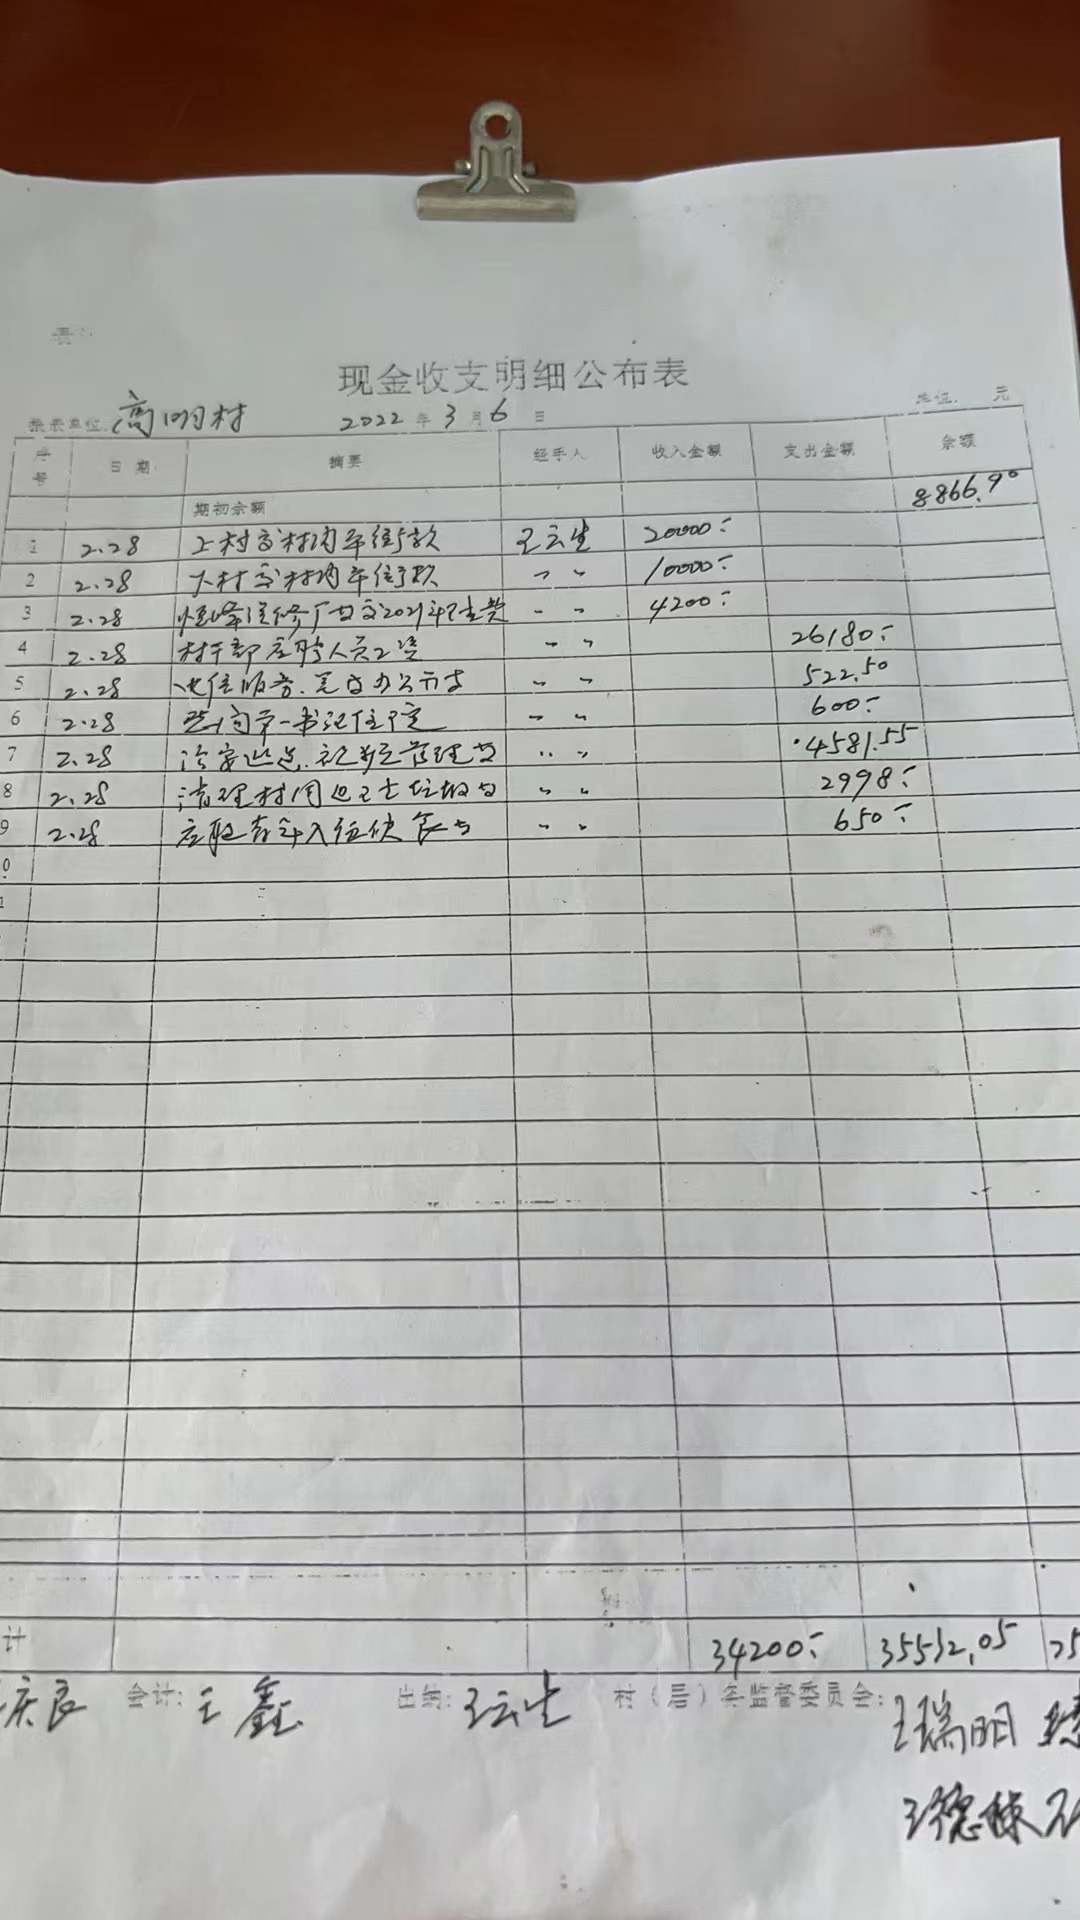 表
现金收支明细公布表
报表单位:高明村 2022年3月6日 单位: 元
序号 日期 摘要 经手人 收入金额 支出金额 余额
期初余额 8866.90
1 2.28 上村交村内平街款 王云生 20000:
2 2.28 下村交村内平街款 〃 10000:
3 2.28 修厂 交2021年卫生费 〃 4200:
4 2.28 村干部应聘人员工资 〃 26180:
5 2.28 办公 〃 522.50
6 2.28 第一书记住 〃 600:
7 2.28 管理 〃 4581.55
8 2.28 清理村周边卫生垃圾 〃 2998:
9 2.28 青年入伍 〃 650:
0
计 34200: 35532.05 75
庆良 会计: 王鑫 出纳: 王云生 村(居)务监督委员会: 王瑞明
王德栋